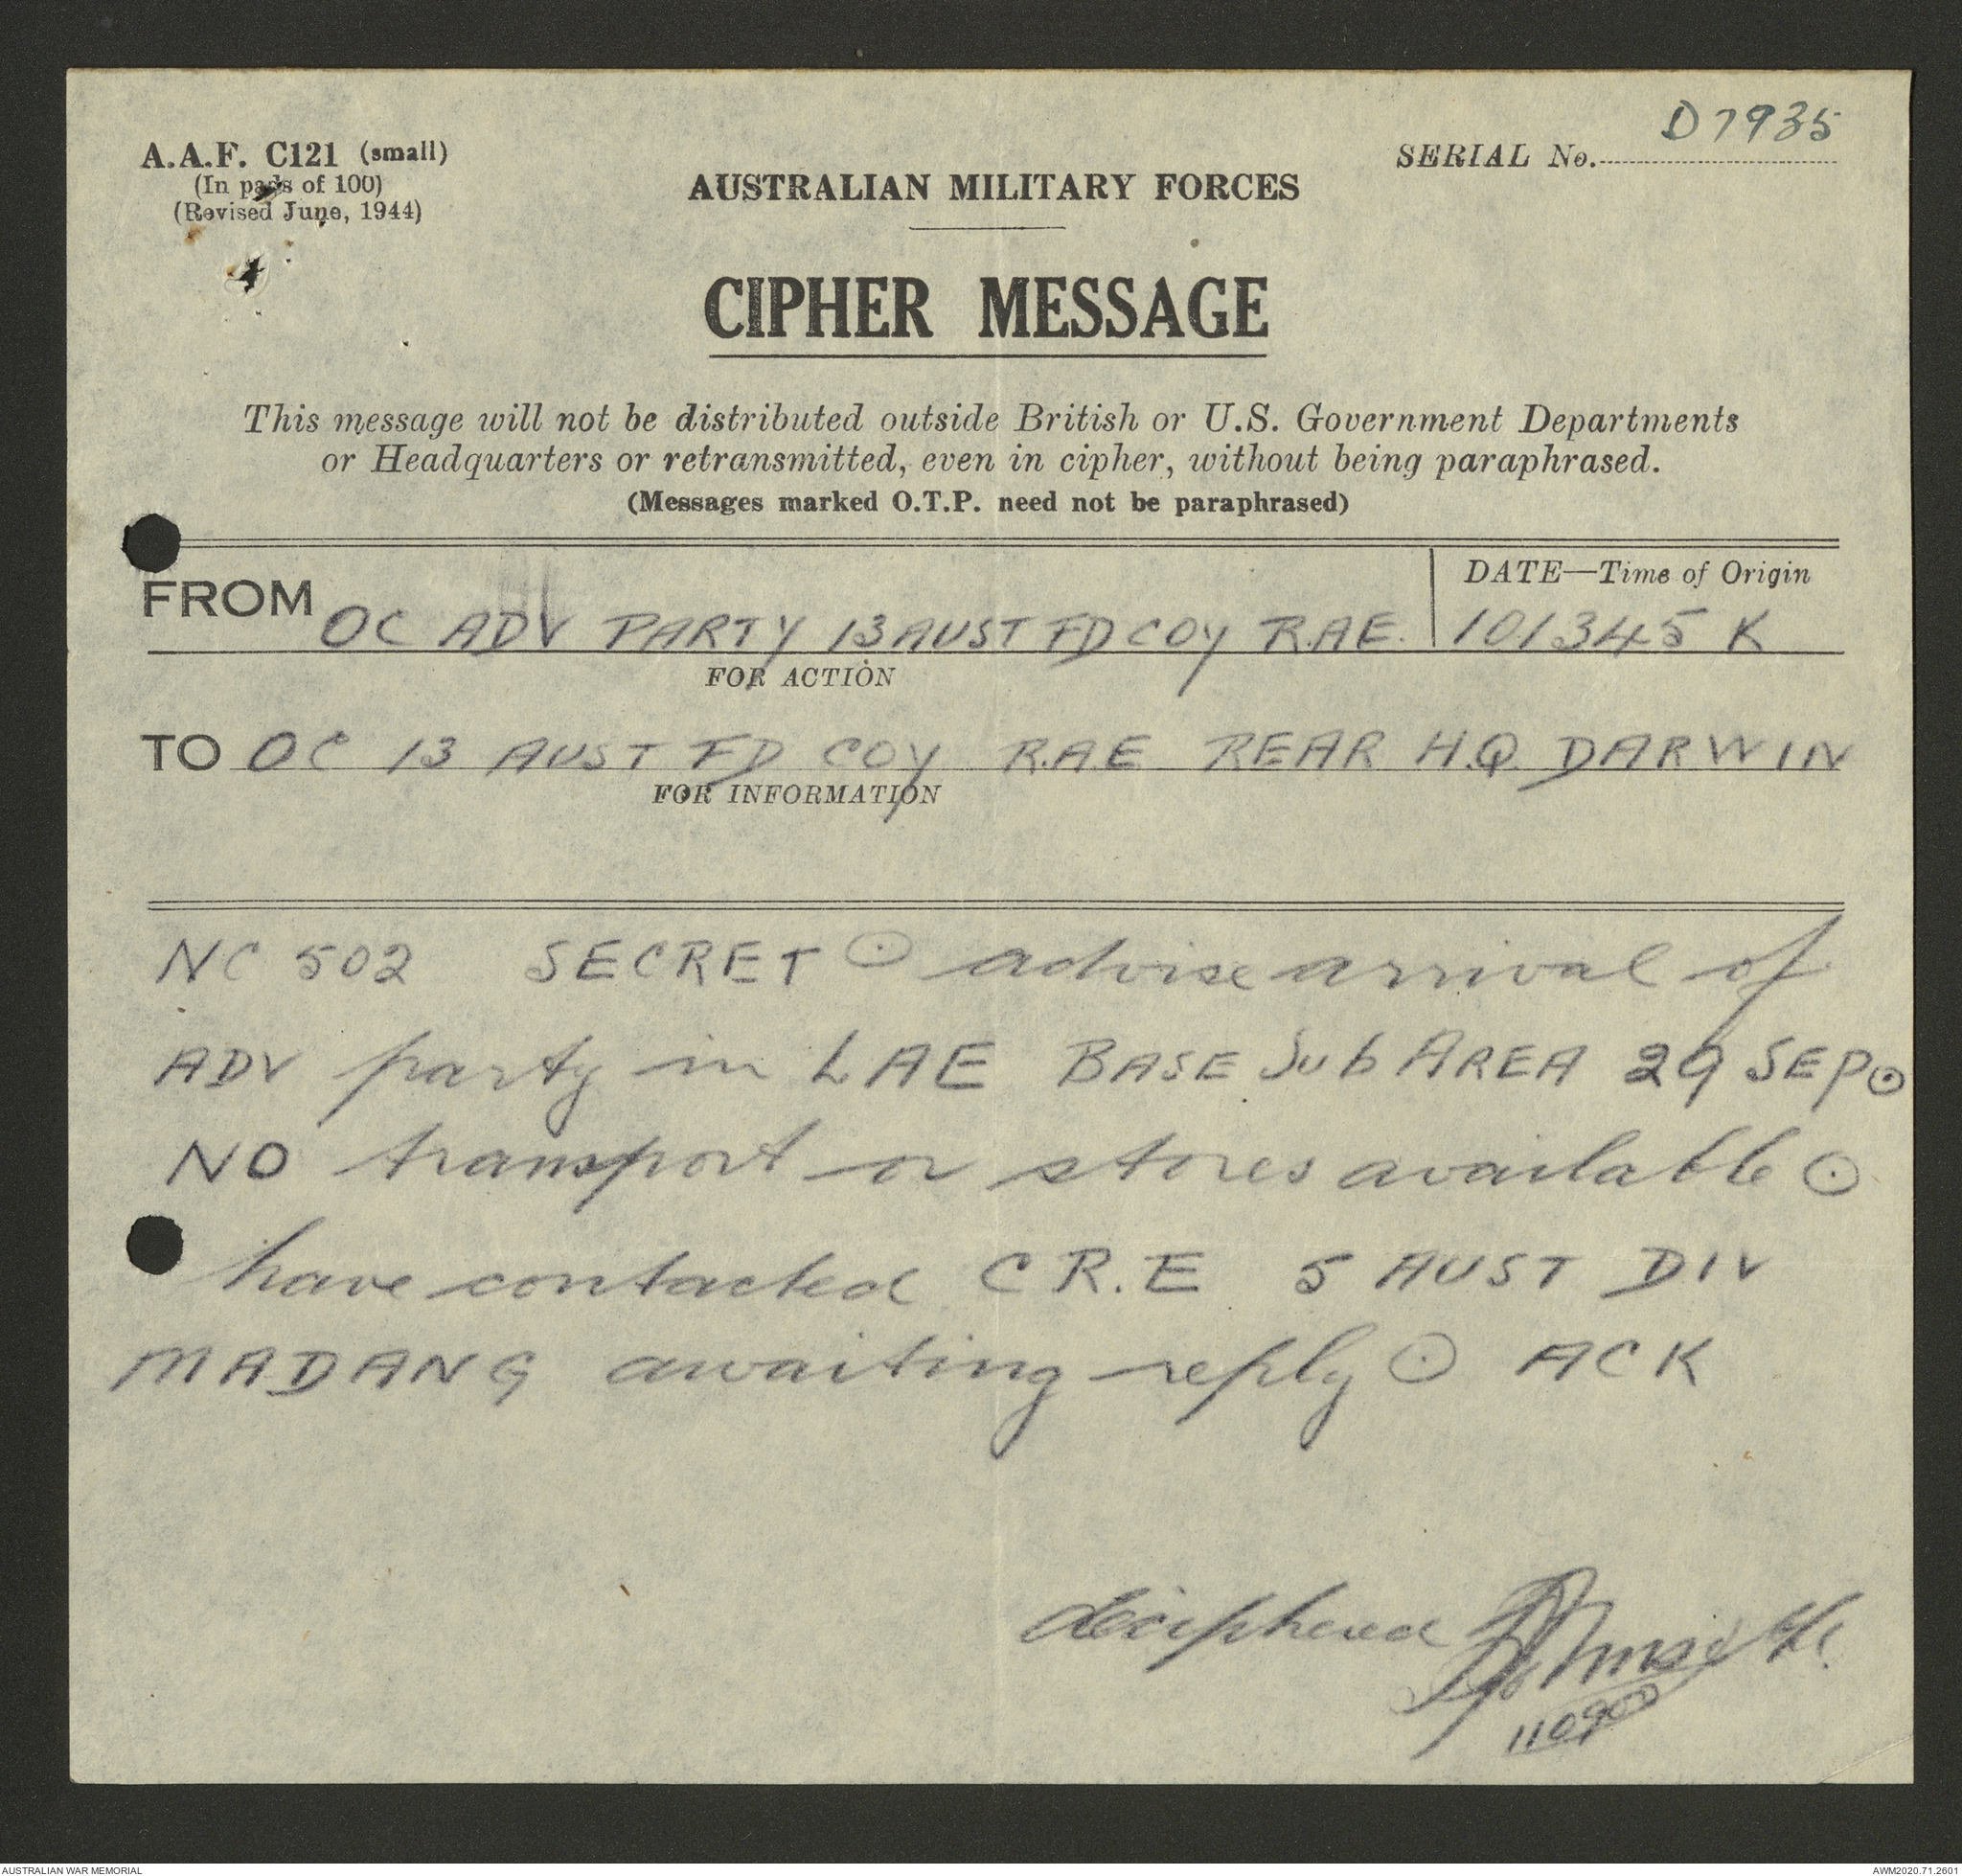 A.A.F. C121 (small)
(In pads of 100)
(Revised June, 1944)
SERIAL No. D7935
AUSTRALIAN MILITARY FORCES
CIPHER MESSAGE
This message will not be distributed outside British or U.S. Government Departments
or Headquarters or retransmitted, even in cipher, without being paraphrased.
(Messages marked O.T.P. need not be paraphrased)
DATE—Time of Origin
FROM OC ADV PARTY 13 AUST FD COY R.A.E. 101345 K
FOR ACTION
TO OC 13 AUST FD COY R.A.E REAR H.Q. DARWIN
FOR INFORMATION
NC 502 SECRET ⊙ advise arrival of
ADV party in LAE BASE Sub AREA 29 SEP ⊙
NO transport or stores available ⊙
have contacted C R.E 5 AUST DIV
MADANG awaiting reply ⊙ ACK
deciphered
110900
AUSTRALIAN WAR MEMORIAL
AWM2020.71.2601